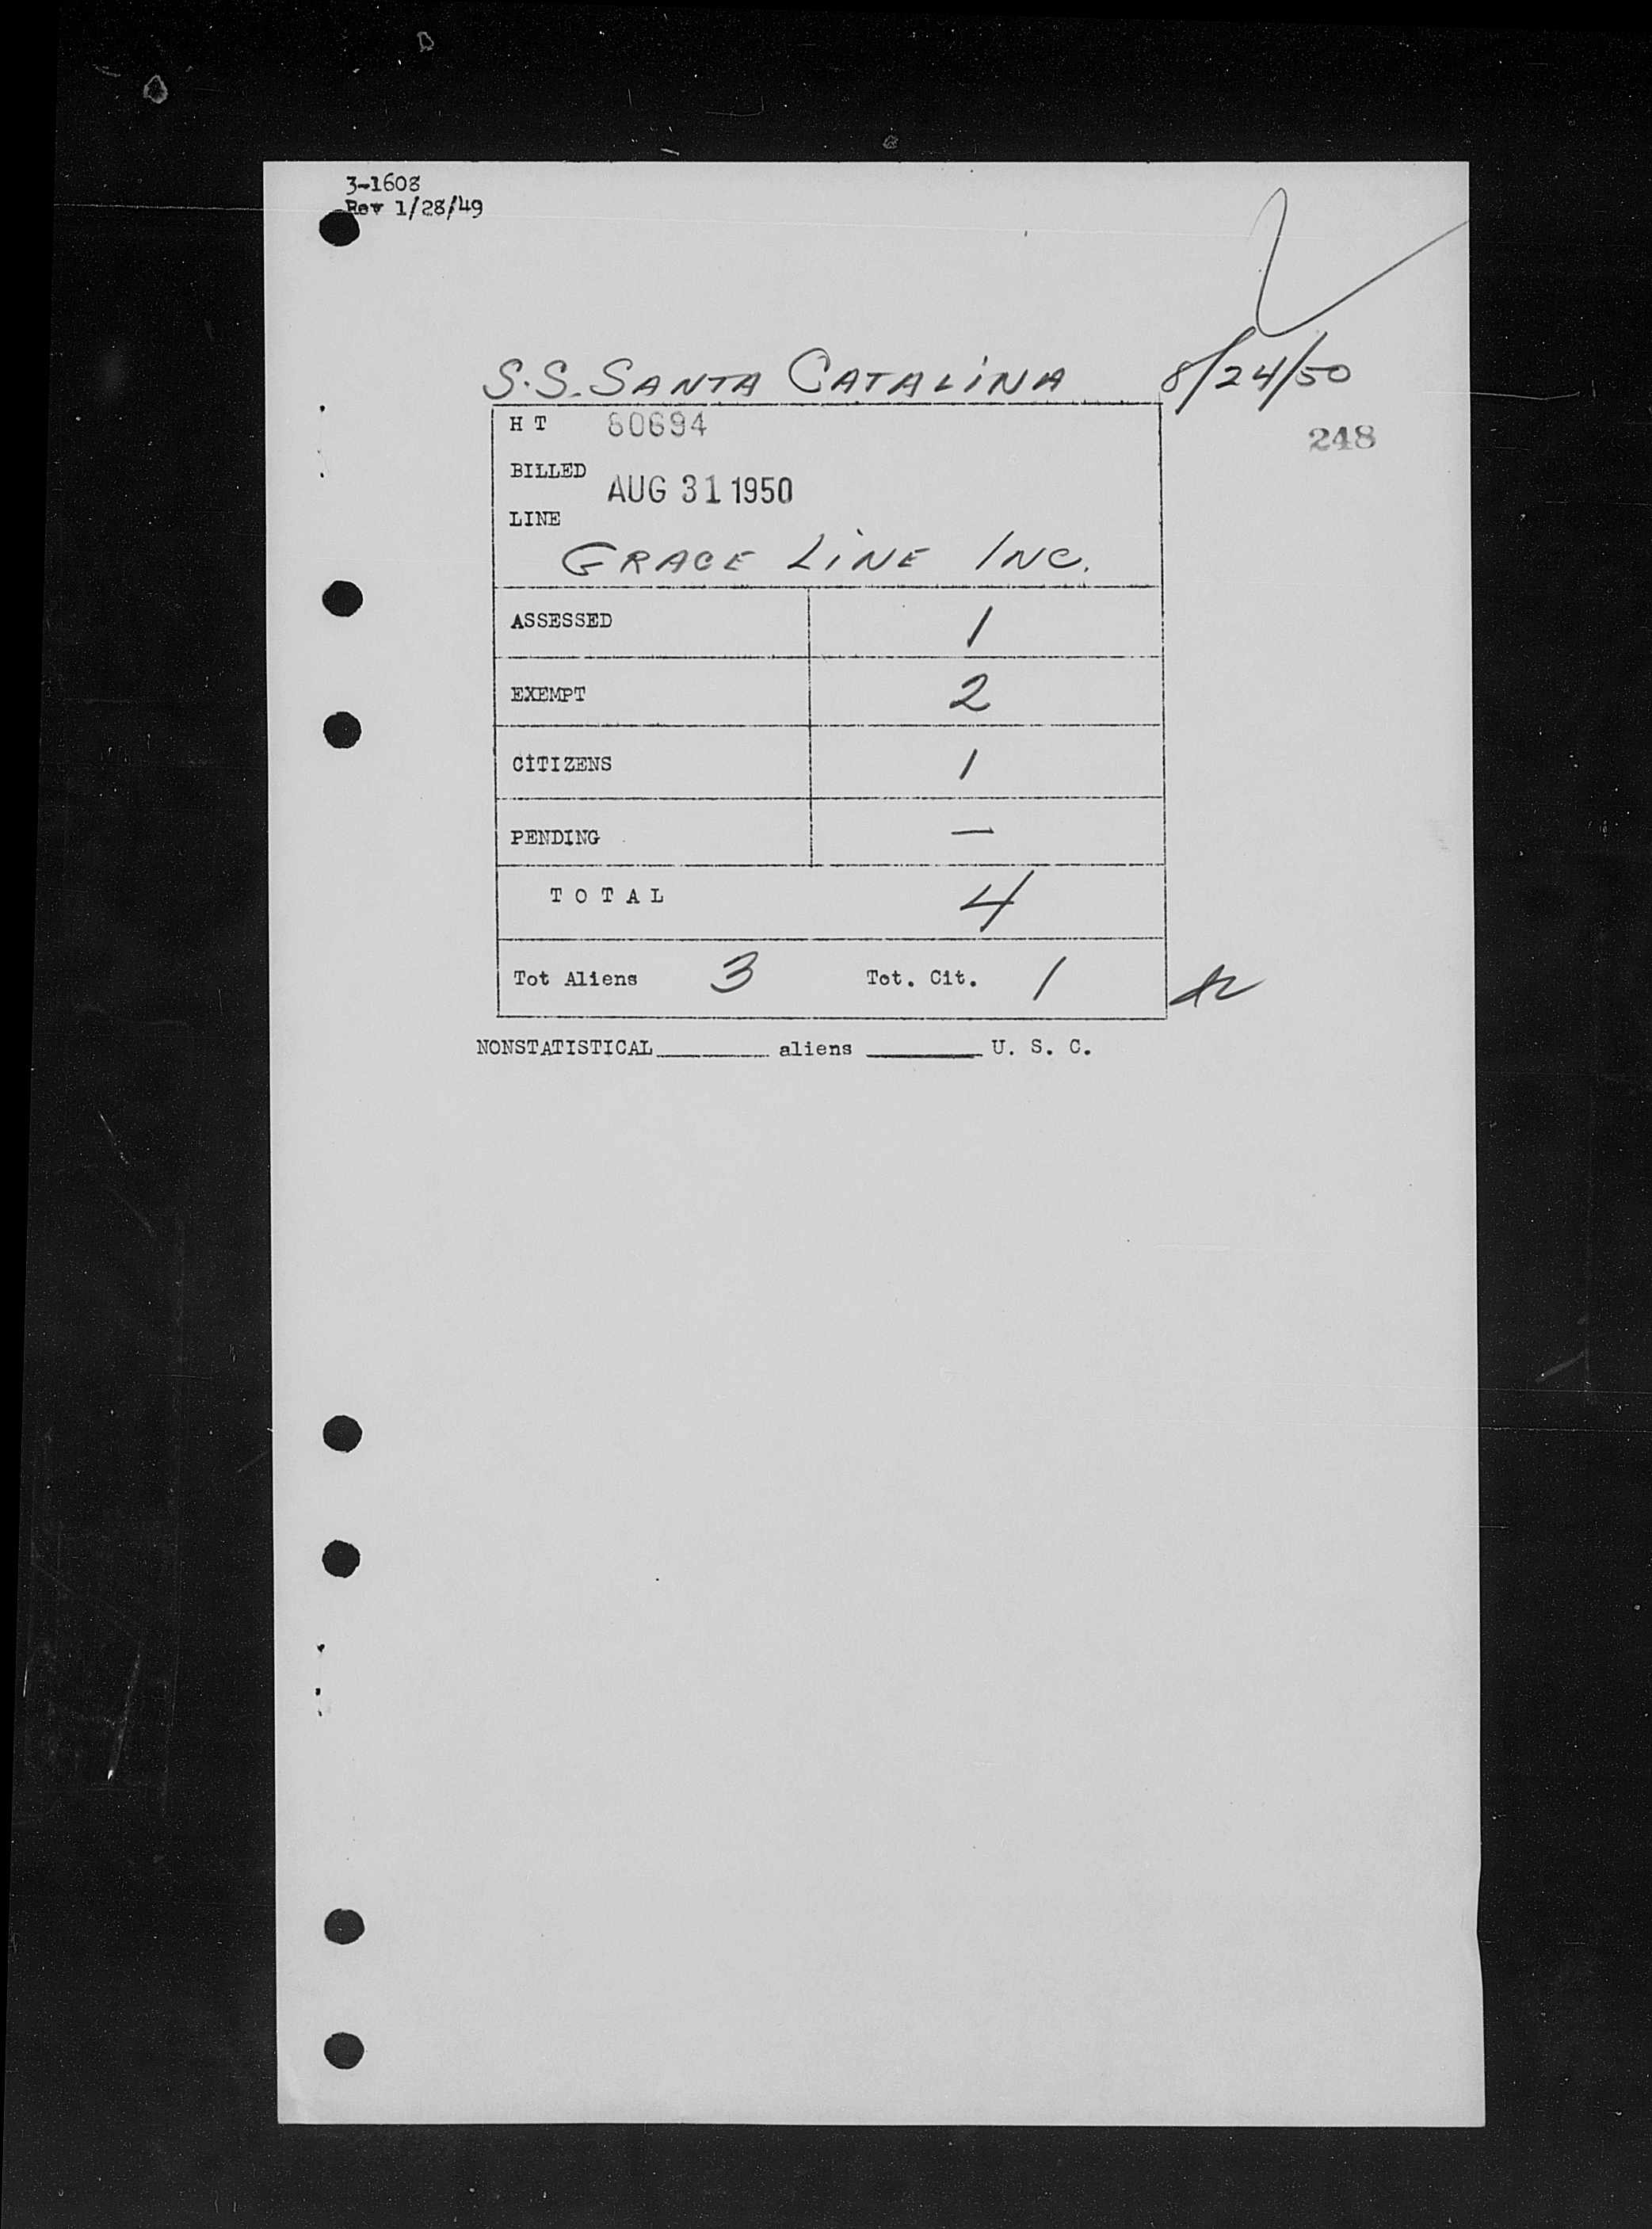 3-1608
Rev 1/28/49
S.S. SANTA CATALINA 8/24/50
H T 60694
248
BILLED AUG 31 1950
LINE
GRACE LINE INC.
ASSESSED 1
EXEMPT 2
CITIZENS 1
PENDING —
T O T A L 4
Tot Aliens 3 Tot. Cit. 1
NONSTATISTICAL________ aliens ________ U. S. C.